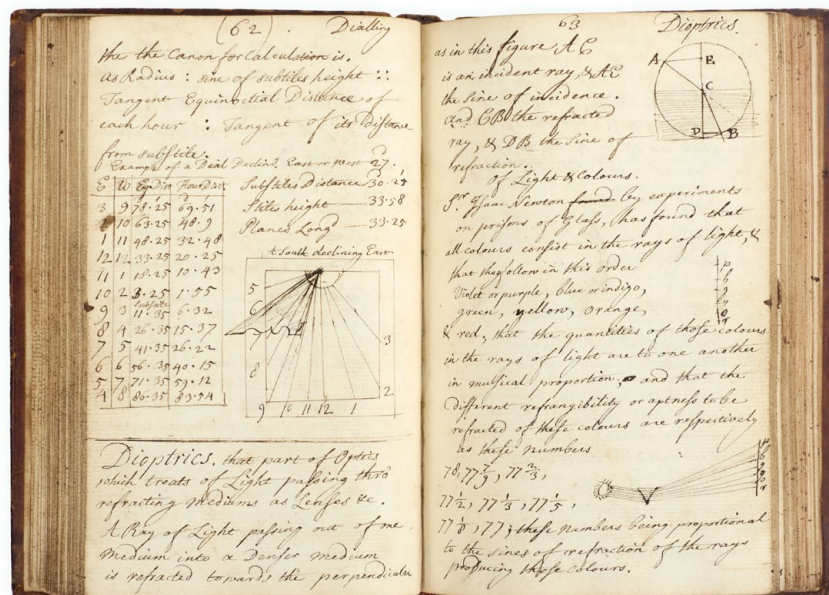 (62). Dialling
the the Canon for Calculation is.
as Radius : sine of substiles height ::
Tangent Equinoctial Distance of
each hour : Tangent of its Distance
from substile.
Example of a Dial Declin. East or West 27.
E W Eq. Dis Hour Dist
3 9 78.25 69.51
10 63.25 48.9
1 11 48.25 32.48
12 12 33.25 20.25
11 1 18.25 10.43
10 2 3.25 1.55
substile
9 3 11.35 6.32
8 4 26.35 15.37
7 5 41.35 26.22
6 6 56.35 40.15
5 7 71.35 59.12
4 8 86.35 83.54
Substiles Distance 30.25
Stiles height 33.58
Planes Long 33.25
A South declining East
5
6
7
8
9 10 11 12 1
2
3
Dioptrics. that part of Optics
which treats of Light passing thro
refracting mediums as Lenses &c.
A Ray of Light passing out of one
Medium into a Denser medium
is refracted towards the perpendicular
63 Dioptrics.
as in this figure AC
is an incident ray, & AE
the Sine of incidence.
and CB the refracted
ray, & DB the Sine of
refraction.
A E
C
D B
Of Light & Colours.
Sr. Isaac Newton found by experiments
on prisms of Glass, has found that
all colours consist in the rays of light, &
that they follow in this order
Violet or purple, blue or indigo,
green, yellow, orange,
& red, that the quantities of those colours
in the rays of light are to one another
in musical proportion, and that the
different refrangibility or aptness to be
refracted of these colours are respectively
as these numbers
78, 77 7/9, 77 2/3,
77 1/2, 77 1/3, 77 1/5,
77 1/8, 77; these numbers being proportional
to the sines of refraction of the rays
producing those colours.